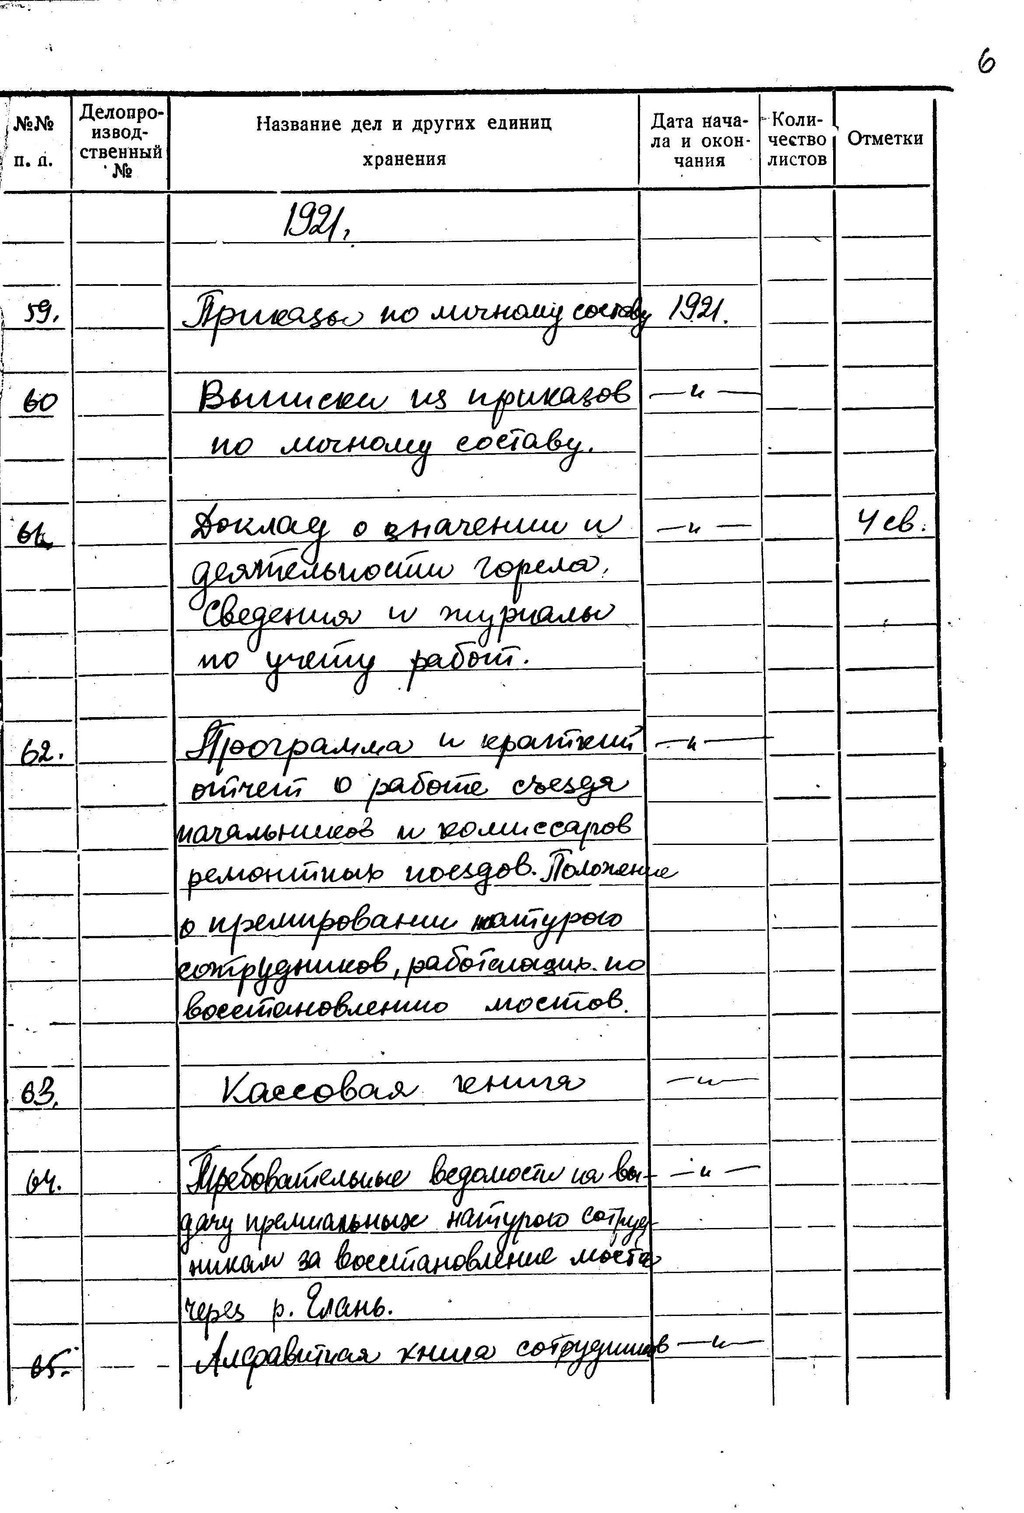 6
№№ п. п.
Делопро-
извод-
ственный
№
Название дел и других единиц
хранения
Дата нача-
ла и окон-
чания
Коли-
чество
листов
Отметки
1921.
59. Приказы по личному составу 1921.
60 Выписки из приказов —"—
по личному составу.
61. Доклад о значении и —"— 4 св.
деятельности
Сведения и журналы
по учету работ.
62. Программа и краткий —"—
отчет о работе съезда
начальников и комиссаров
ремонтных поездов. Положение
о премировании натурою
сотрудников, работающих по
восстановлению мостов.
63. Кассовая книга —"—
64. Требовательные ведомости на вы- —"—
дачу премиальных натурою сотруд-
никам за восстановление моста
через р. Елань.
65. Алфавитная книга сотрудников —"—